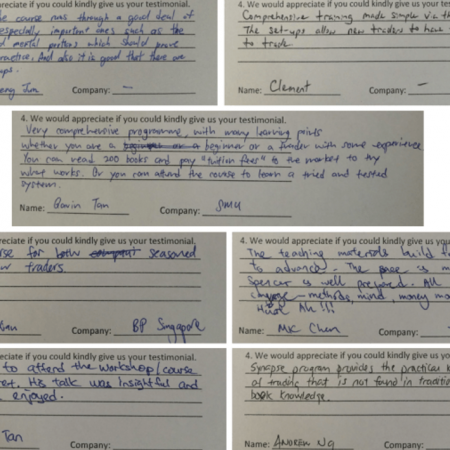 reciate if you could kindly give us your testimonal.
course was through a good deal of
especially important ones such as the
d mental which should prove
practice. And also it is good that there are
ups.
Company: –
4. We would appreciate if you could kindly give us your tes
Comprehensive training made simple via th
The set-ups allow new traders to have
to trade.
Name: Clement Company: –
4. We would appreciate if you could kindly give us your testimonial.
Very comprehensive programme, with many learning points
whether you are a beginner or a trader with some experience.
You can read 200 books and pay "tuition fees" to the market to try
what works. Or you can attend the course to learn a tried and tested
system.
Name: Gavin Tan Company: SMU
eciate if you could kindly give us your testimonial.
rse for both seasoned
w traders.
Company: BP Singapore
4. We would appreciate if you could kindly give us you
The teaching materials build f
to advance. The pace is m
Spencer is well prepared. All
methods, mind, money ma
Huat Ah !!!
Name: MK Chen Company:
eciate if you could kindly give us your testimonial.
to attend the workshop/course
ret. His talk was insightful and
enjoyed.
Tan Company:
4. We would appreciate if you could kindly give us y
Synapse program provides the practical k
of trading that is not found in traditio
book knowledge.
Name: Andrew Ng Company: